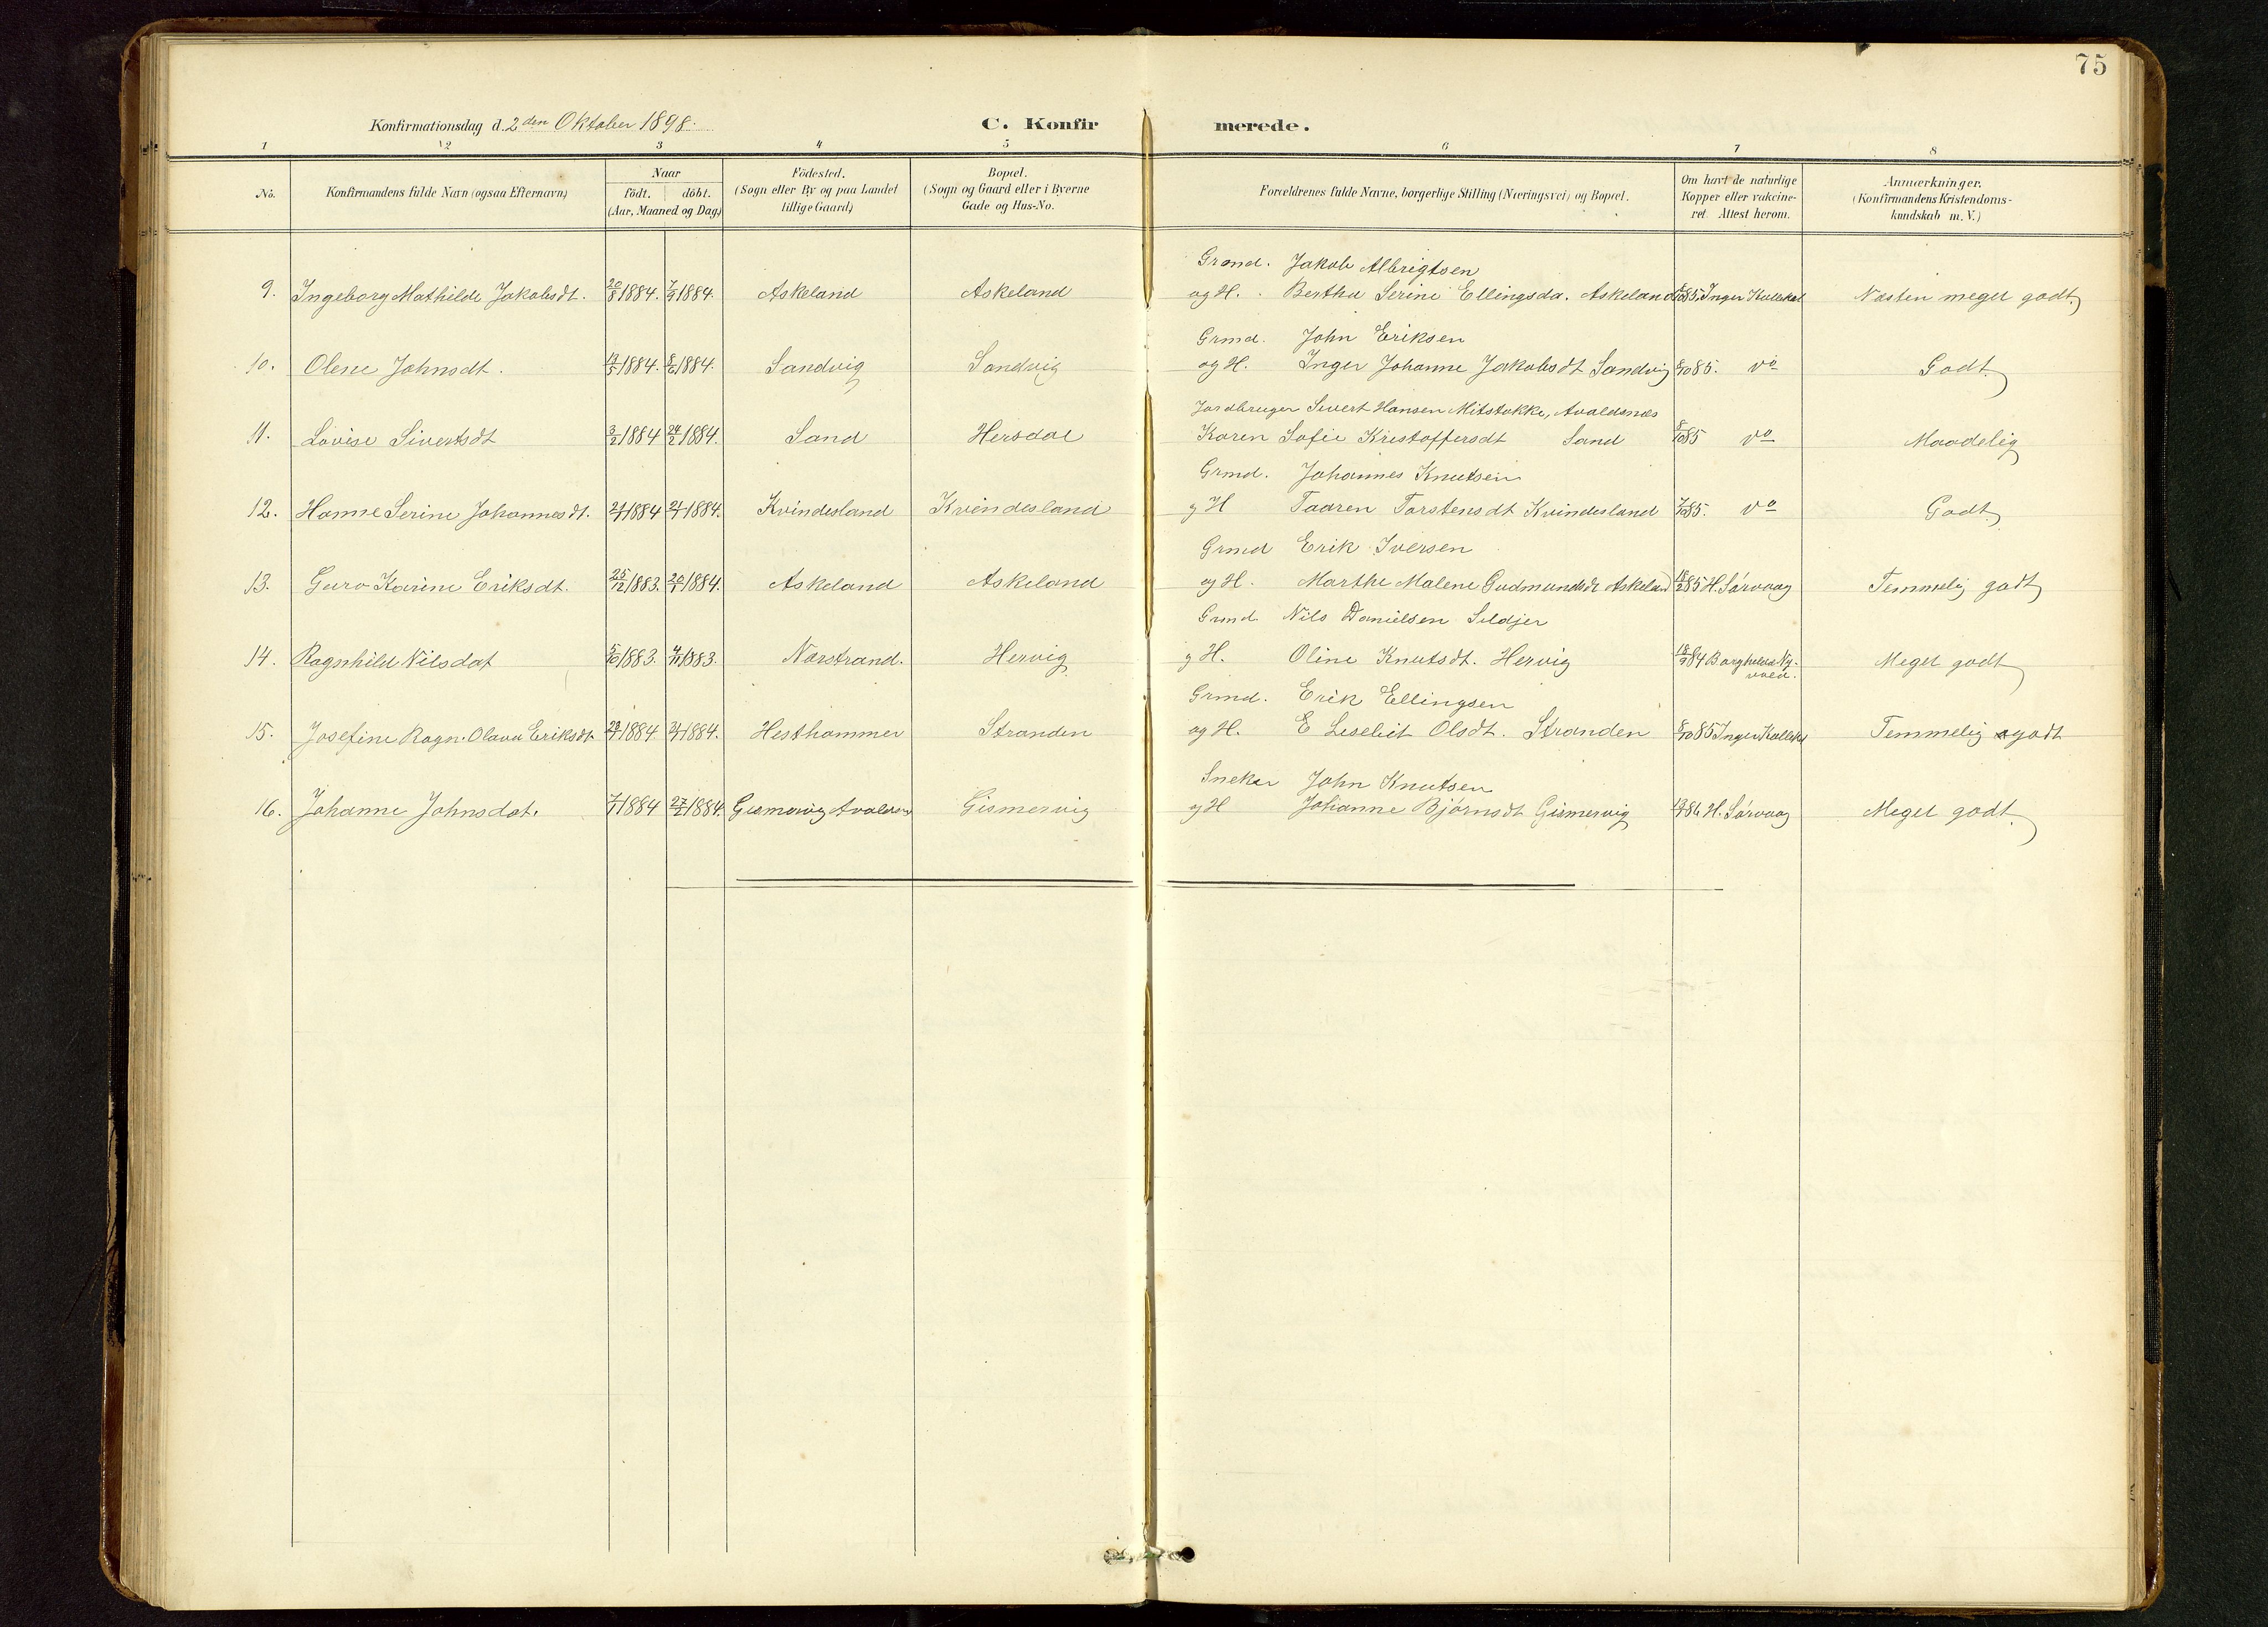 75
Konfirmationsdag d. 2den Oktober 1898.
C. Konfir merede.
1 2 3 4 5 6 7 8
No.
Konfirmandens fulde Navn (ogsaa Efternavn)
Naar
født. døbt.
(Aar, Maaned og Dag)
Födested.
(Sogn eller By og paa Landet
tillige Gaard)
Bopæl.
(Sogn og Gaard eller i Byerne
Gade og Hus-No.
Forældrenes fulde Navne, borgerlige Stilling (Næringsvei) og Bopæl.
Om havt de naturlige
Kopper eller vakcine-
ret. Attest herom.
Anmærkninger.
(Konfirmandens Kristendoms-
kundskab m. V.)
Grmd. Jakob Albrigtsen
9. Ingeborg Mathilde Jakobsdt. 20/8 1884. 7/9 1884. Askeland Askeland og H. Bertha Serine Ellingsda. Askeland 85. Inger Næsten meget godt
Grmd. John Eriksen
10. Olene Johnsdt. 1884. 8/6 1884. Sandvig Sandvig og H. Inger Johanne Jakobsdt Sandvig 8/10 85. vo Godt
Jordbruger Sivert Hansen Mitstokke, Avaldsnes
11. Lovise Sivertsdt 3/2 1884 24/2 1884. Sand Hersdal Karen Sofie Kristoffersdt Sand 8/10 85 vo Maadelig
Grmd. Johannes Knutsen
12. Hanne Serine Johannesdt. 1884 1884. Kvindesland Kvindesland g H Taaren Torstensdt Kvindesland 85. vo Godt
Grmd Erik Iversen
13. Guro Karine Eriksdt. 25/12 1883. 20/1 1884. Askeland Askeland og H. Marthe Malene Gudmundsdt Askeland 85 H. Sørvaag Temmelig godt
Grmd. Nils Danielsen Seldjer
14. Ragnhild Nilsdat 5/10 1883. 4/11 1883. Nærstrand. Hervig g H. Oline Knutsdt. Hervig 84 Borghild Ny-
vold. Meget godt
Grmd. Erik Ellingsen
15. Josefine Ragn. Olava Eriksdt. 1884 1884. Hesthammer Stranden og H. E Lisebet Olsdt. Stranden 8/10 85 Inger Temmelig godt
Sneker John Knutsen
16. Johanne Johnsdat. 7/1 1884 27/2 1884. Gismervig Gismervig og H Johanne Bjørnsdt Gismervig 86 H. Sørvaag Meget godt